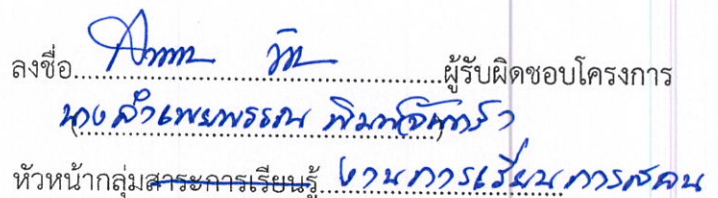 ลงชื่อ................................................ผู้รับผิดชอบโครงการ
(นางลำเพยพรรณ พิมพ์จันทร์)
หัวหน้ากลุ่มสาระการเรียนรู้ งานการเรียนการสอน